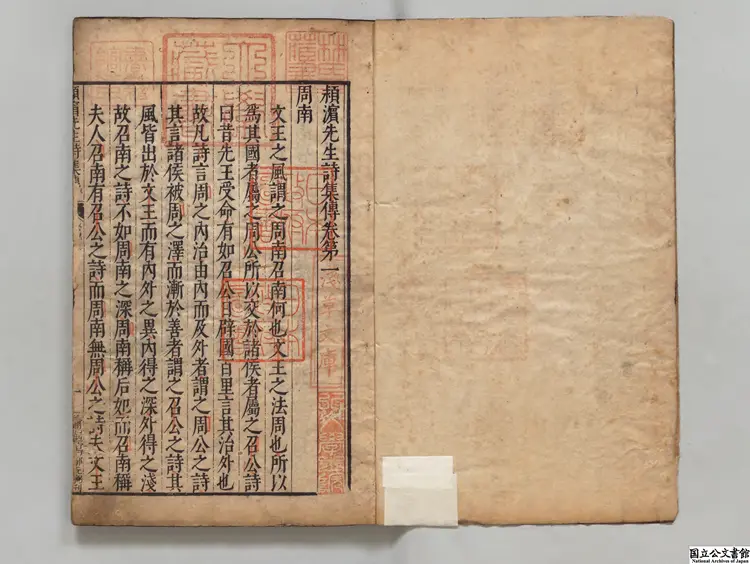 頴濵先生詩集傳卷第一
周南
文王之風謂之周南召南何也文王之法周也所以
爲其國者屬之周公所以交於諸侯者屬之召公詩
曰昔先王受命有如召公日辟國百里言其治外也
故凡詩言周之内治由内而及外者謂之周公之詩
其言諸侯被周之澤而漸於善者謂之召公之詩其
風皆出於文王而有内外之異内得之深外得之淺
故召南之詩不如周南之深周南稱后妃而召南稱
夫人召南有召公之詩而周南無周公之詩夫文王
淺草文庫
林氏
藏書
國立公文書館
National Archives of Japan